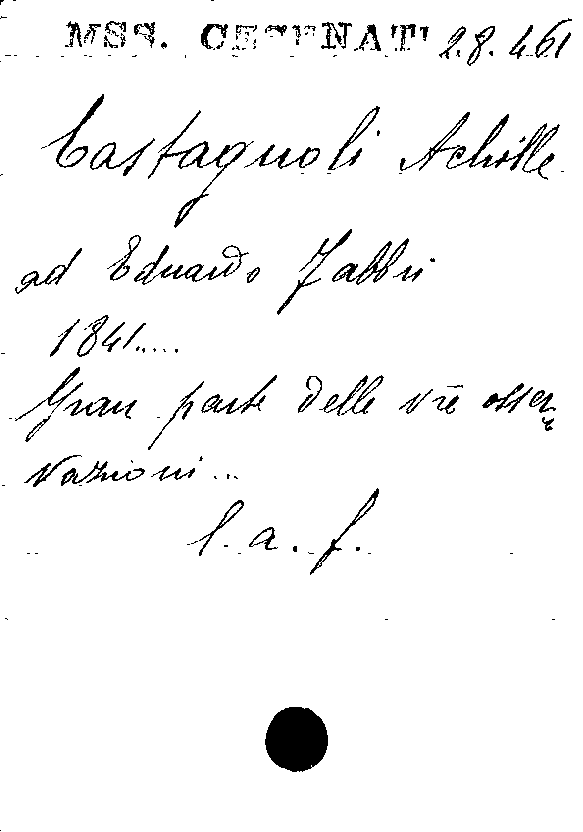 MSS. CESENATI 28.461
Castagnoli Achille
ad Eduardo Fabbri
1841.....
Gran parte delle vre osser
vazioni...
l. a. f.